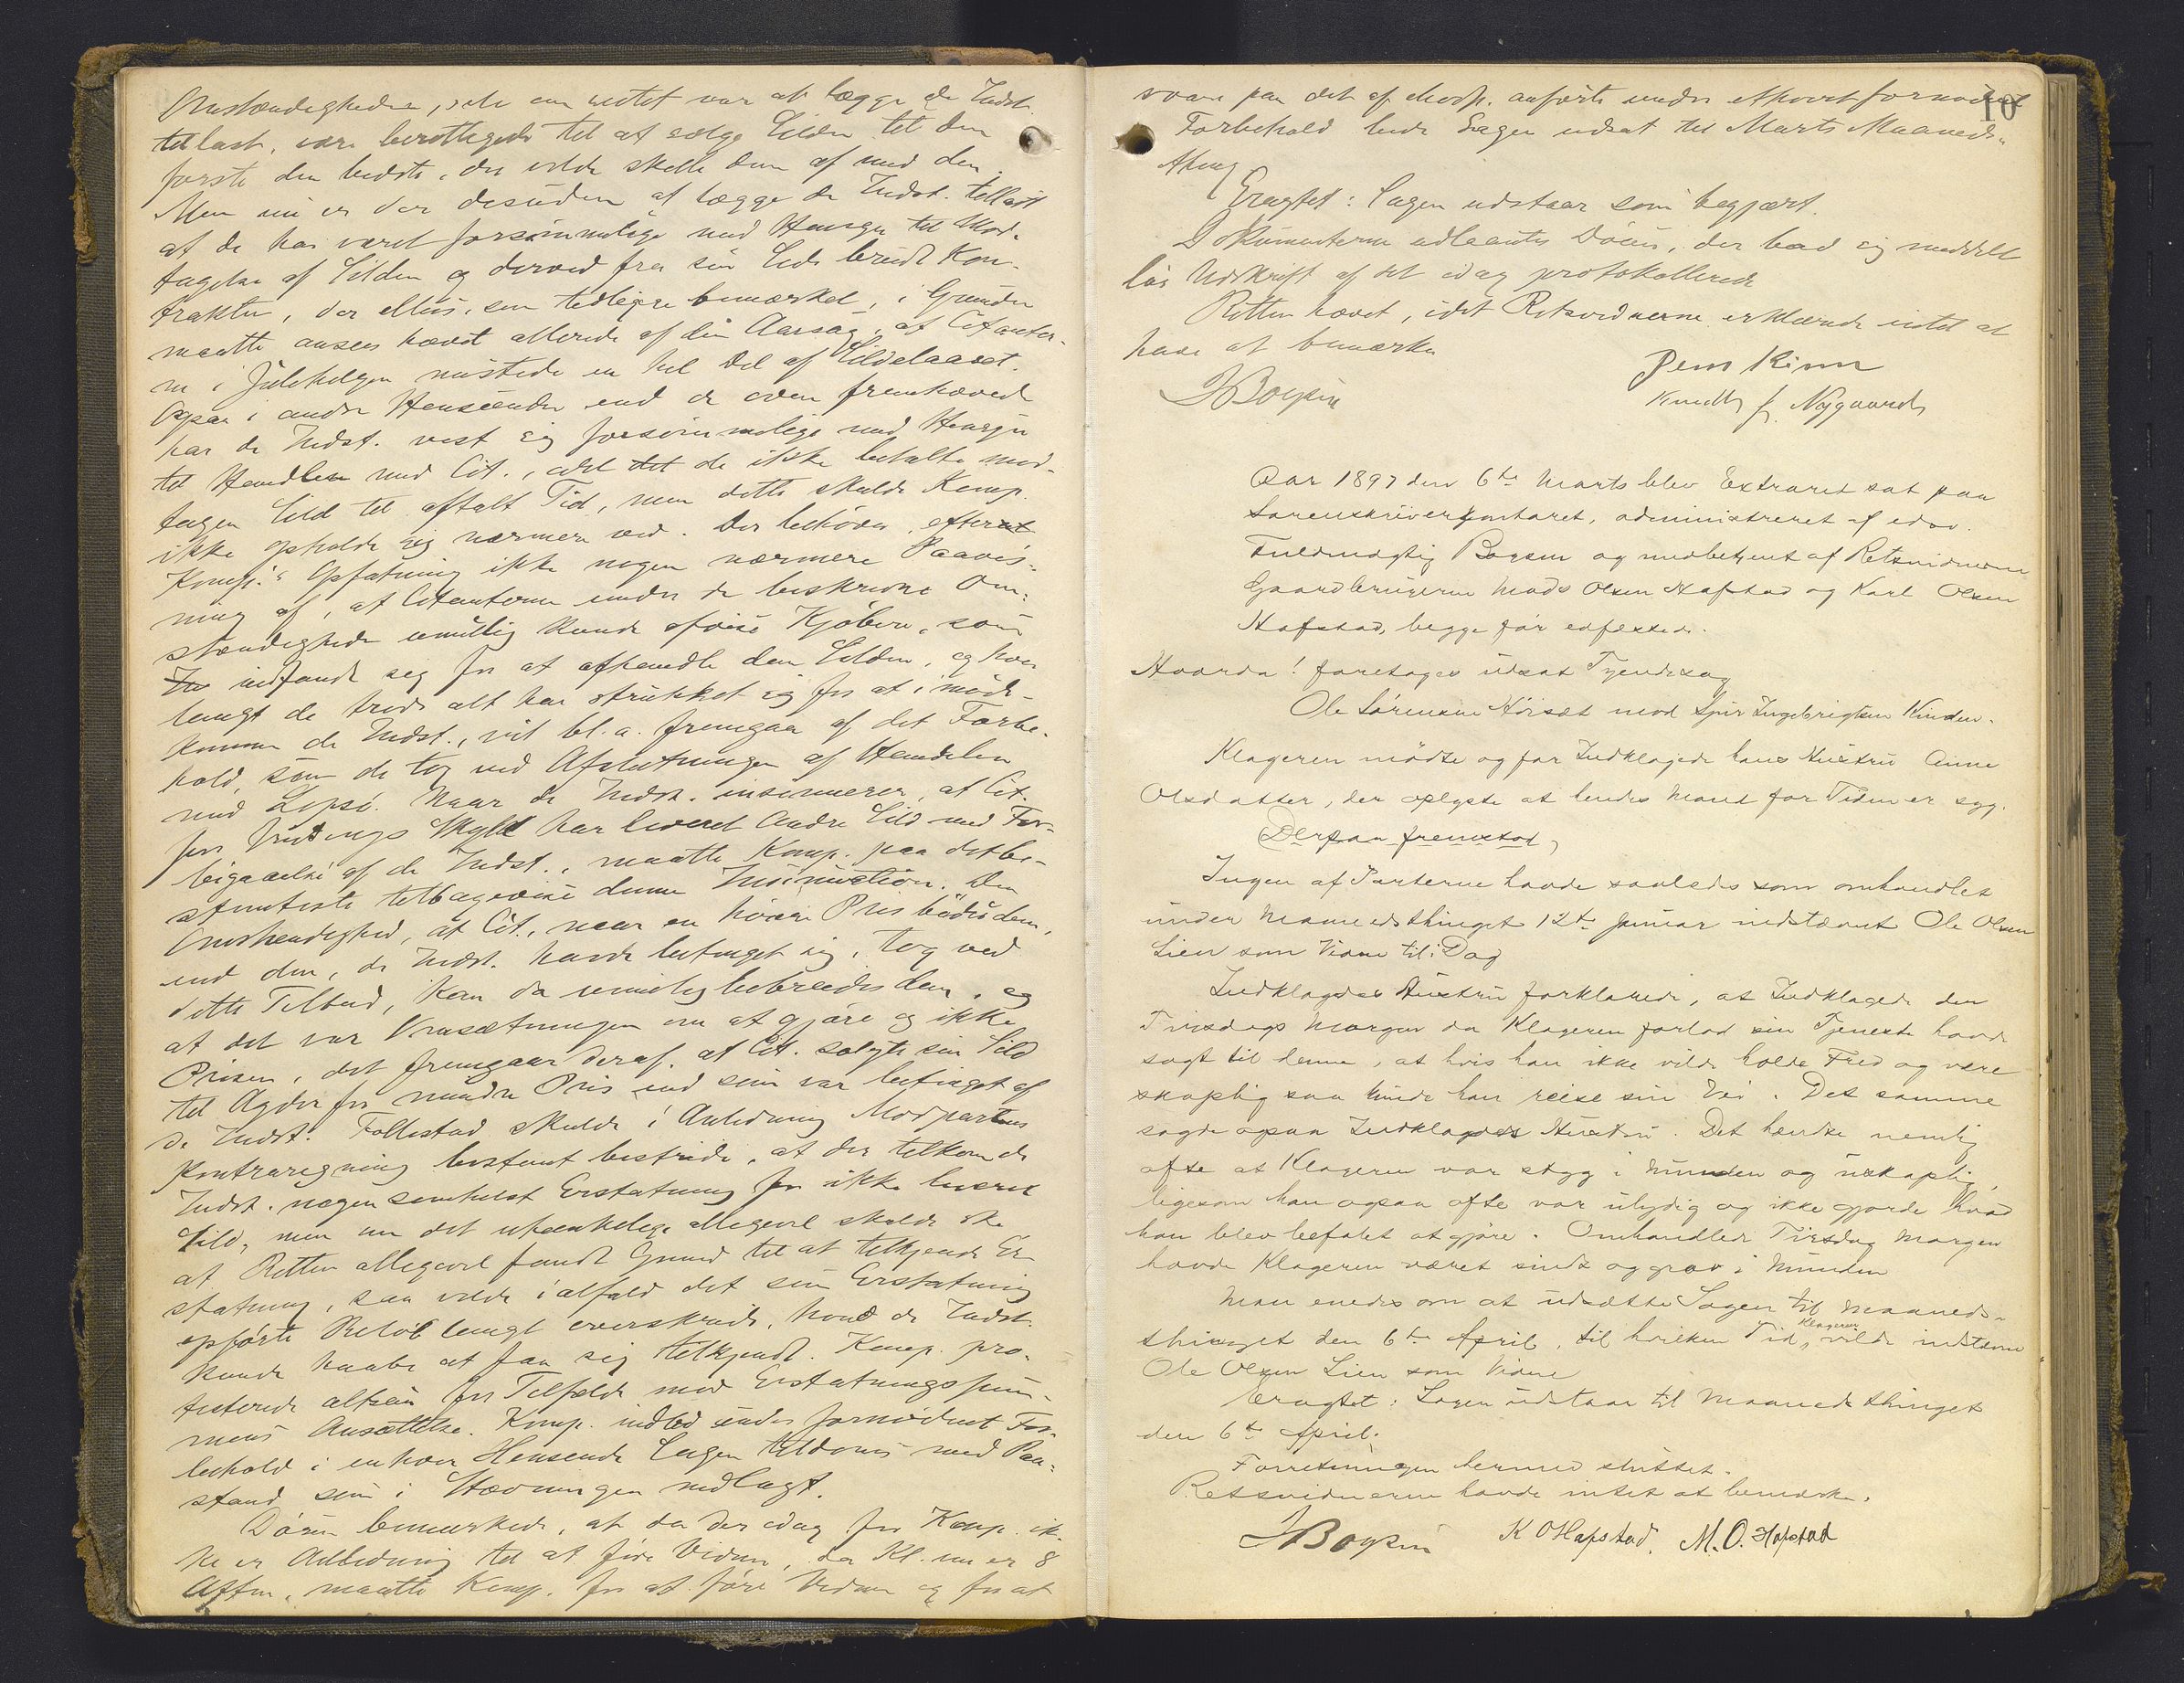 Omstændighederne, selv om intet var at lægge de Indst.
til last, være berettigede til at sælge Silden til den
første den bedste, der vilde skille dem af med den.
Men nu er der desuden at lægge de Indst. tillast
at de har været forsømmelige med Hensyn til Mod-
tagelse af Silden og derved fra sin Side brudt Kon-
trakten, der ellers, som tidligere bemærket, i Grunden
maatte ansees hævet allerede af den Aarsag, at Citanter-
ne i Julehelgen mistede en hel Del af Sildelaaset.
Ogsaa i andre Henseender end de oven fremhævede
har de Indst. vist sig forsømmelige med Hensyn
til Handlen med Cit., idet det de ikke behalte mod-
tagen Sild til aftalt Tid, men dette skulde Komp.
ikke opholde sig nærmere ved. Der behøves efter
Komp.s Opfatning ikke nogen nærmere Paavis-
ning af, at Citanterne under de beskrevne Om-
stændigheder umulig kunde afvise Kjøbere, som
indfandt sig for at afhandle dem Silden, og hvor
langt de trods alt har strukket sig for at imøde-
komme de Indst., vil bl. a. fremgaa af det Forbe-
hold, som de tog ved Afslutningen af Handelen
med Lepsø. Naar de Indst. insinuerer, at Cit.
for Vindings Skyld har leveret Andre Sild med For-
bigaaelse af de Indst., maatte Komp. paa det be-
stemteste tilbagevise denne Insinuation. Den
Omstændighed, at Cit., naar en høiere Pris bødes dem,
end den, de Indst. havde betinget sig, tog ved
dette Tilbud, kan da umulig bebreides dem, og
at det var Omsætningen om at gjøre og ikke
Prisen, det fremgaar deraf, at Cit. solgte sin Sild
til Agdor for mindre Pris end som var betinget af
de Indst. Follestad skulde i Anledning Modpartens
Kontraregning bestemt bestride, at der tilkom de
Indst. nogensomhelst Erstatning for ikke leveret
Sild, men om det utænkelige allegevel skulde ske
at Retten allegevel fandt Grund til at tilkjende Er-
statning, saa vilde ialfald det som Erstatning
opførte Beløb langt overskride, hvad de Indst.
kunde haabe at faa sig tilkjendt. Komp. pro-
testerede altsaa for Tilfælde mod Erstatningssum-
mens Ansættelse. Komp. indlod under fornødent For-
behold i enhver Henseende Sagen tildoms med Paa-
stand som i Stævningen nedlagt.
Døsen bemærkede, at da der idag for Komp. ik-
ke er Anledning til at føre Vidner, da Kl. nu er 8
Aften, maatte Komp. for at føre Vidner og for at
10
svare paa det af Modp. anførte under ethvert fornødent
Forbehold bede Sagen udsat til Marts Maaneds-
thing
Eragtet: Sagen udstaar som begjært.
Dokumenterne udlaantes Døsen, der bad sig meddelt
løs Udskrift af det idag protokollerede
Retten hævet, idet Retsvidnerne erklærede intet at
have at bemærke
JBoysen
Jens Rimn
Knudt J. Nygaard
Aar 1897 den 6te Marts blev Extraret sat paa
Sorenskriverkontoret, administreret af edsv.
Fuldmægtig Boysen og medbetjent af Retsvidnerne
Gaardbrugerne Mads Olsen Hafstad og Karl Olsen
Hafstad, begge før edfæstede.
Hvorda! foretoges udsat Tyendesag
Ole Sørensen Hørsæt mod Sivr Ingebrigtsen Kinden.
Klageren mødte og for Indklagede hans Hustru Anne
Olsdatter, der oplyste at hendes Mand for Tiden er syg.
Derpaa fremstod,
Ingen af Parterne havde saaledes som omhandlet
under Maanedsthinget 12te Januar indstævnt Ole Olsen
Lien som Vidne til i Dag
Indklagedes Hustru forklarede, at Indklagede den
Tirsdags Morgen da Klageren forlod sin Tjeneste havde
sagt til denne, at hvis han ikke vilde holde Fred og være
skaplig saa kunde han reise sin Vei. Det samme
sagde ogsaa Indklagedes Hustru. Det hændte nemlig
ofte at Klageren var styg i Munden og uskaplig,
ligesom han ogsaa ofte var ulydig og ikke gjorde hvad
han blev befalet at gjøre. Omhandlede Tirsdag Morgen
havde Klageren været sindt og grov i Munden
Man enedes om at udsætte Sagen til Maaneds-
thinget den 6te April, til hvilken Tid Klageren vilde indstævne
Ole Olsen Lien som Vidne
Eragtet: Sagen udstaar til Maanedsthinget
den 6te April.
Forretningen hermed sluttet.
Retsvidnerne havde intet at bemærke.
JBoysen K O Hafstad. M. O. Hafstad